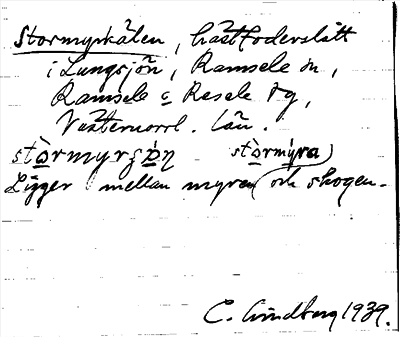 Stormyrkälen, hästfoderslått
i Lungsjön, Ramsele sn,
Ramsele o Resele tg,
Västernorrl. län.
stòrmyrʂo̩ṇ stòrmýra)
Ligger mellan myren och skogen.
C. Lindberg 1939.